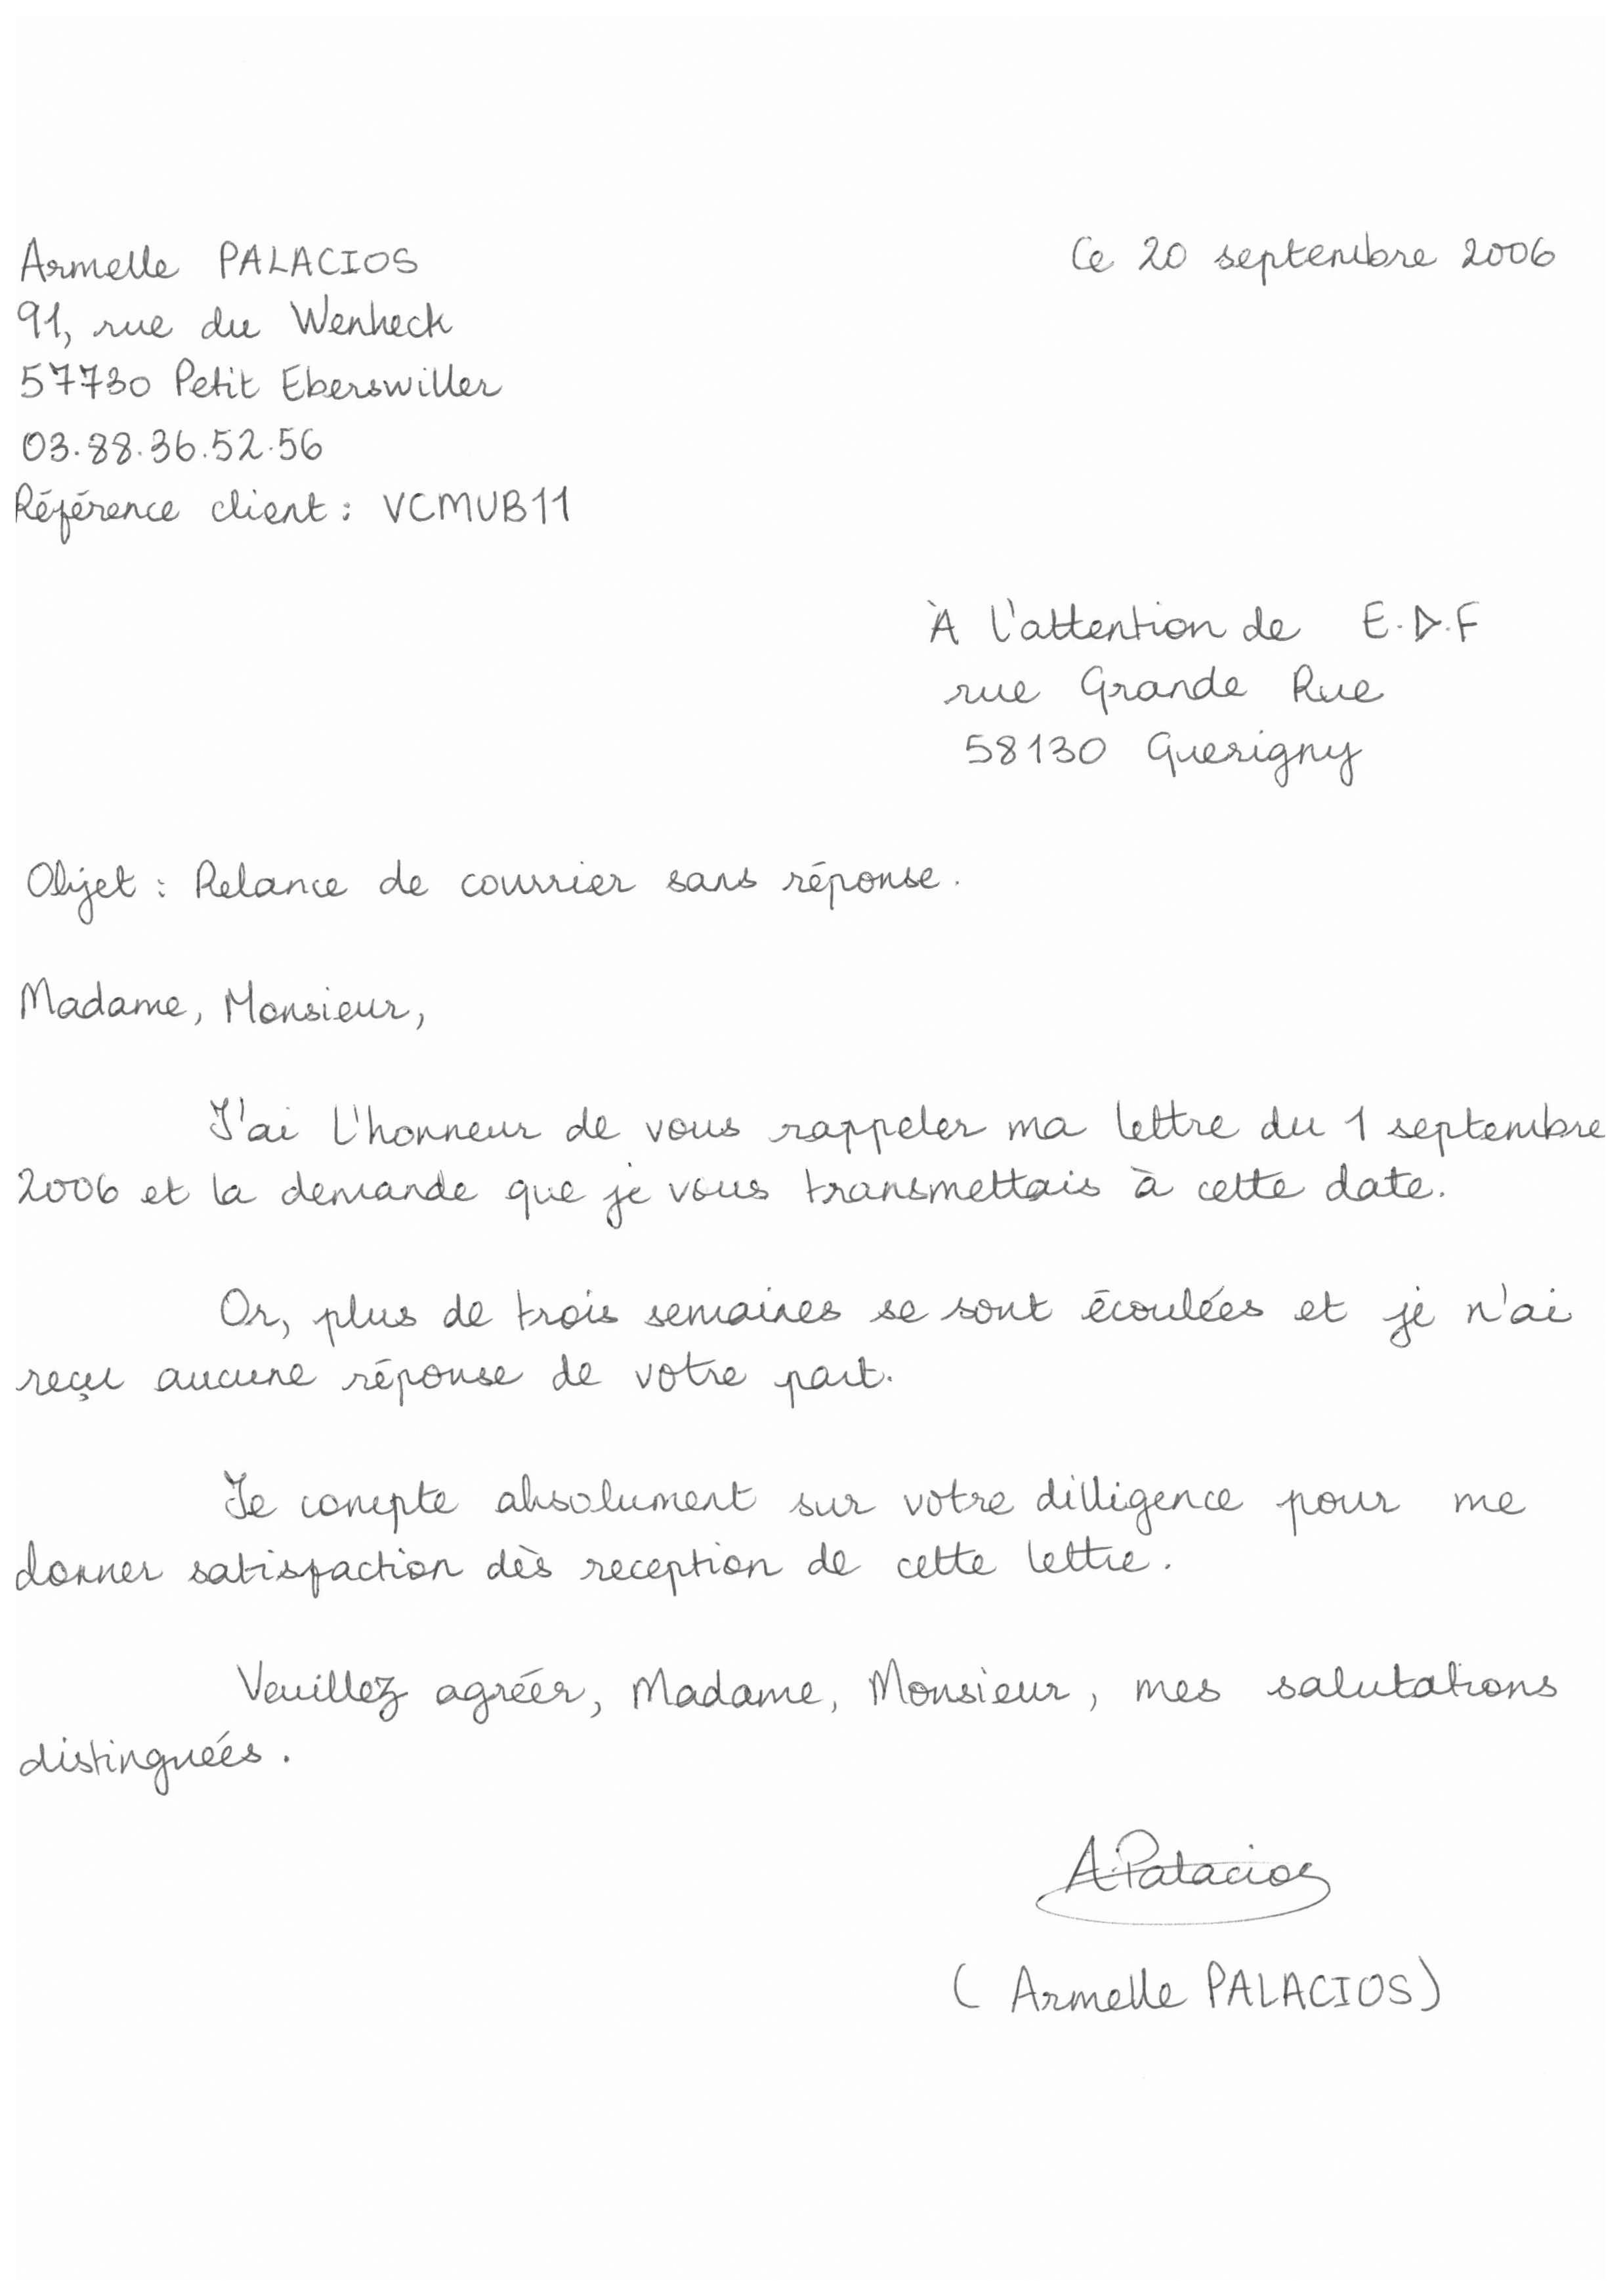 Armelle PALACIOS
Ce 20 septembre 2006
91, rue du Wenheck
57730 Petit Eberswiller
03.88.36.52.56
Référence client : VCMUB11
À l'attention de E.D.F
rue Grande Rue
58130 Guerigny
Objet : Relance de courrier sans réponse.
Madame, Monsieur,
J'ai l'honneur de vous rappeler ma lettre du 1 septembre
2006 et la demande que je vous transmettais à cette date.
Or, plus de trois semaines se sont écoulées et je n'ai
reçu aucune réponse de votre part.
Je compte absolument sur votre dilligence pour me
donner satisfaction dès reception de cette lettre.
Veuillez agréer, Madame, Monsieur, mes salutations
distinguées.
A.Palacios
( Armelle PALACIOS)